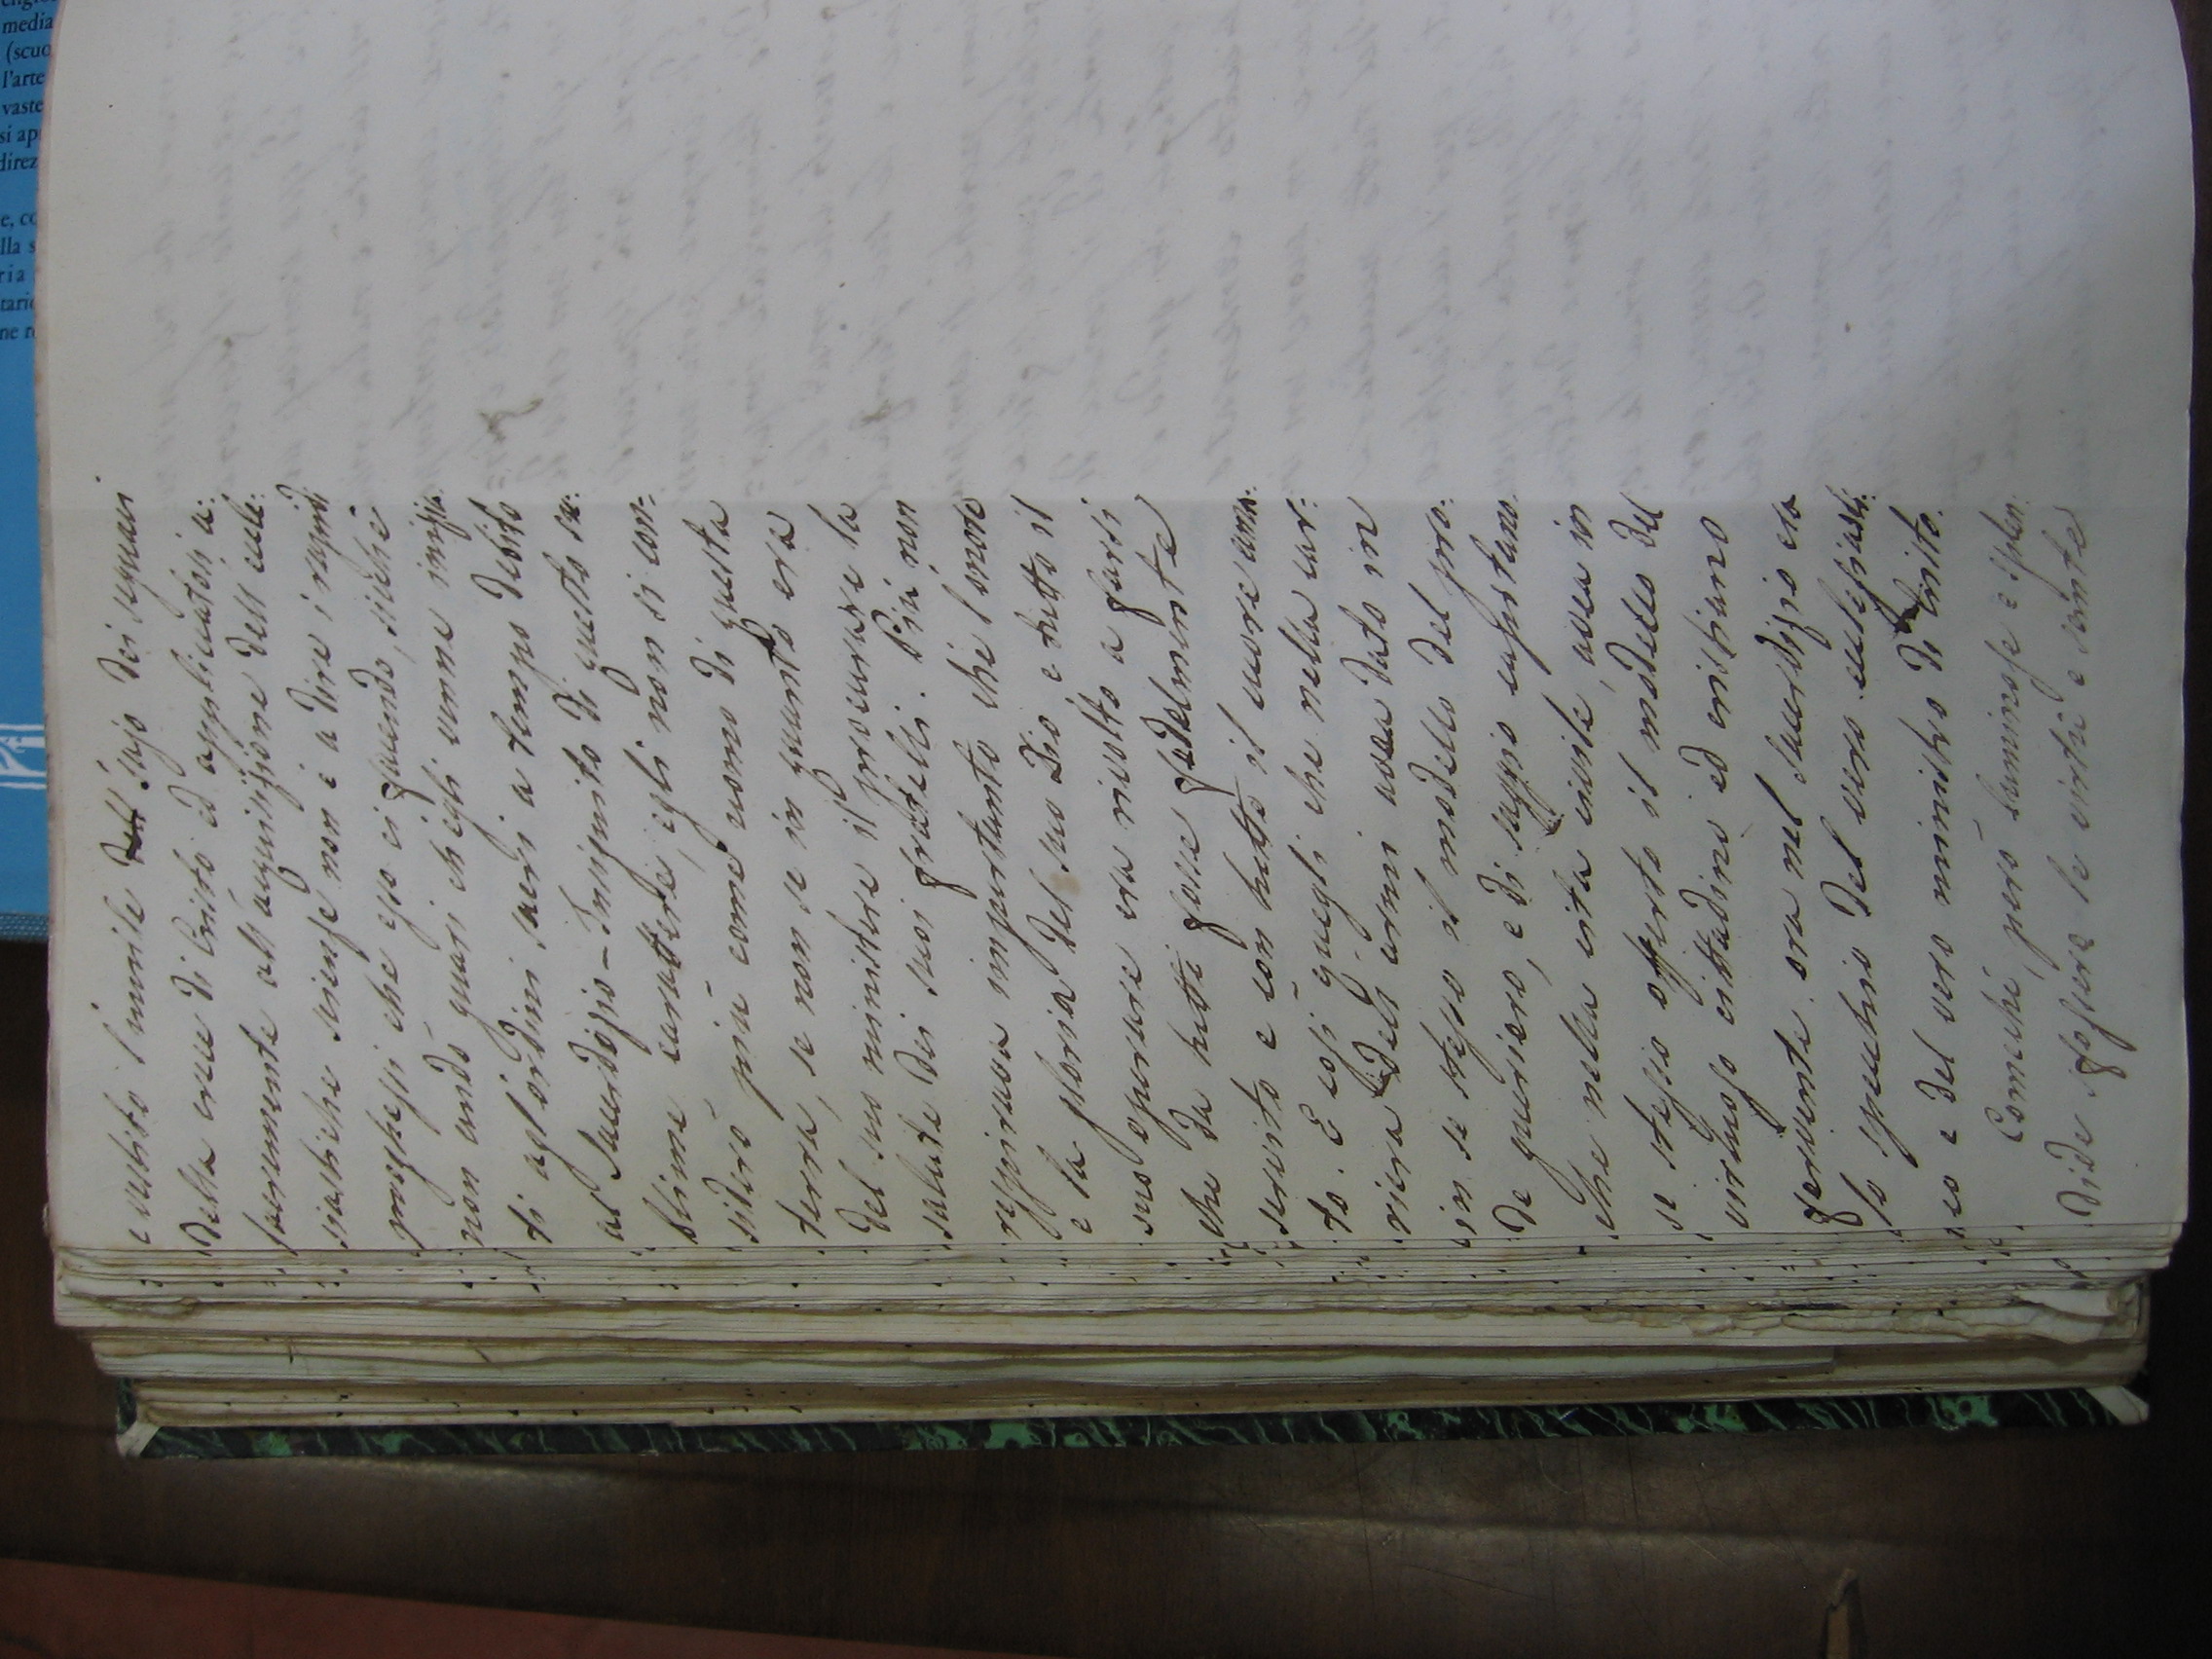 e vestito l'umile dell sajo dei seguaci
della croce di Cristo ed applicatosi a:
lacremente all'acquisizione dell'eccle:
siastiche scienze non è a dire i rapidi
progressi che esso ci facendo, sicchè
non andò guari ch'egli venne inizia:
ti agl'ordini sacri a tempo debito
al Sacerdozio – Insignito di questo su:
blime carattere, egli non si con:
siderò più come uomo di questa
terra, se non se in quanto era
del suo ministere il procurare la
salute dei suoi fratelli. Più non
respirava impertanto che l'onore
e la gloria del suo Dio e tutto il
suo operare era rivolto a farsi
che da tutti fosse fedelmente
servito e con tutto il cuore ama:
to. E così quegli che nella car:
riera dell'armi avea dato in
in se stesso il modello del pro:
de guerriero, e di saggio capitano
che nella vita civile, avea in
se stesso offerto il modello del
virtuoso cittadino ed cristiano
fervente. ora nel Sacerdozio era
lo specchio del vero ecclesiasti:
co e del vero ministro di Cristo.
Comechè, però luminose e splen:
dide fossero le virtù e sante
media
(scuo
l'arte
vaste
si ap
direz
e, co
lla s
ria
tario
ne r